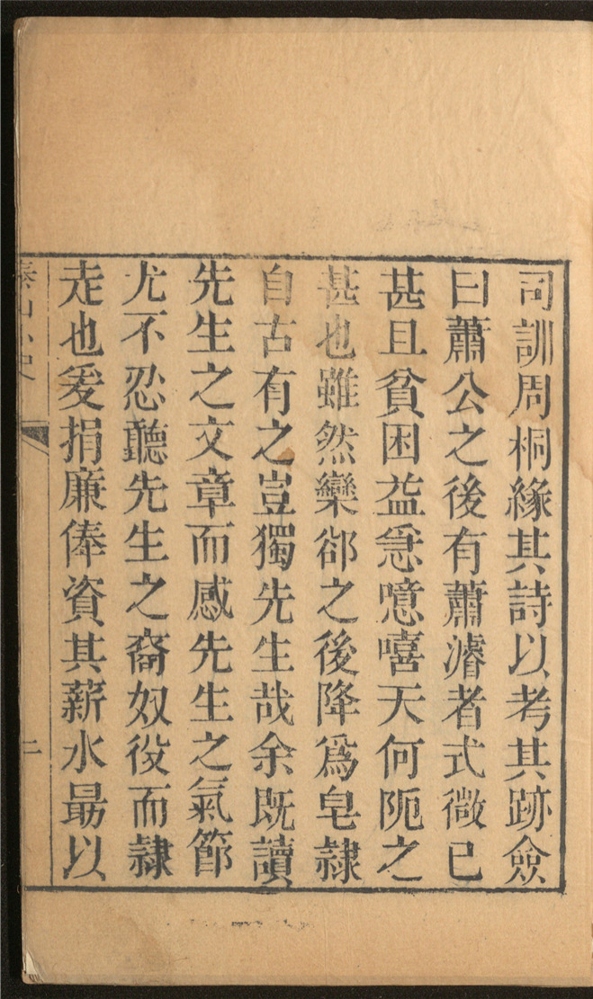 司訓周桐緣其詩以考其跡僉
曰蕭公之後有蕭濬者式微已
甚且貧困益急噫嘻天何阨之
甚也雖然欒郤之後降為皂隸
自古有之豈獨先生哉余既讀
先生之文章而感先生之氣節
尤不忍聽先生之裔奴役而隸
走也爰捐廉俸資其薪水最以
泰山小史
二